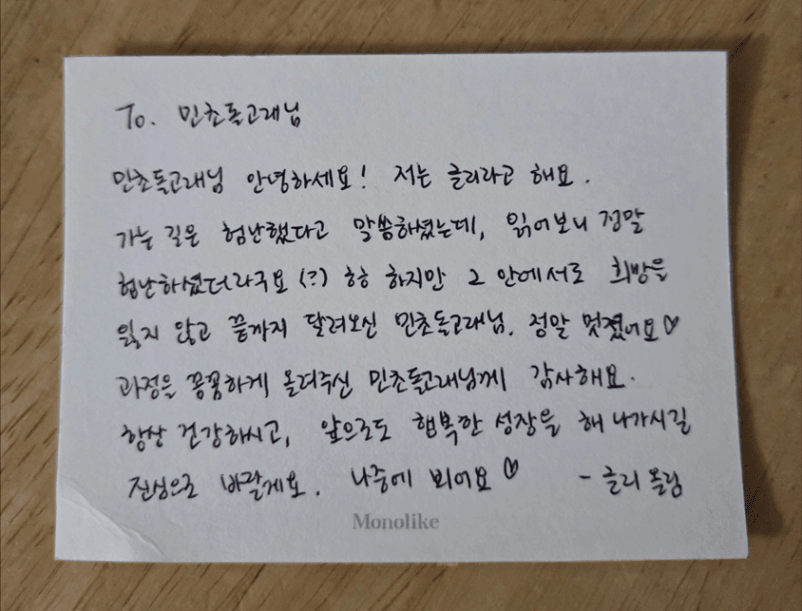 To. 민초돌고래님
민초돌고래님 안녕하세요! 저는 글리라고 해요.
가는 길은 험난했다고 말씀하셨는데, 읽어보니 정말
험난하셨더라구요 (?) ㅎㅎ 하지만 그 안에서도 희망을
잃지 않고 끝까지 달려오신 민초돌고래님. 정말 멋졌어요♡
과정을 꼼꼼하게 올려주신 민초돌고래님께 감사해요.
항상 건강하시고, 앞으로도 행복한 성장을 해 나가시길
진심으로 바랄게요. 나중에 뵈어요♡ - 글리 올림
Monolike